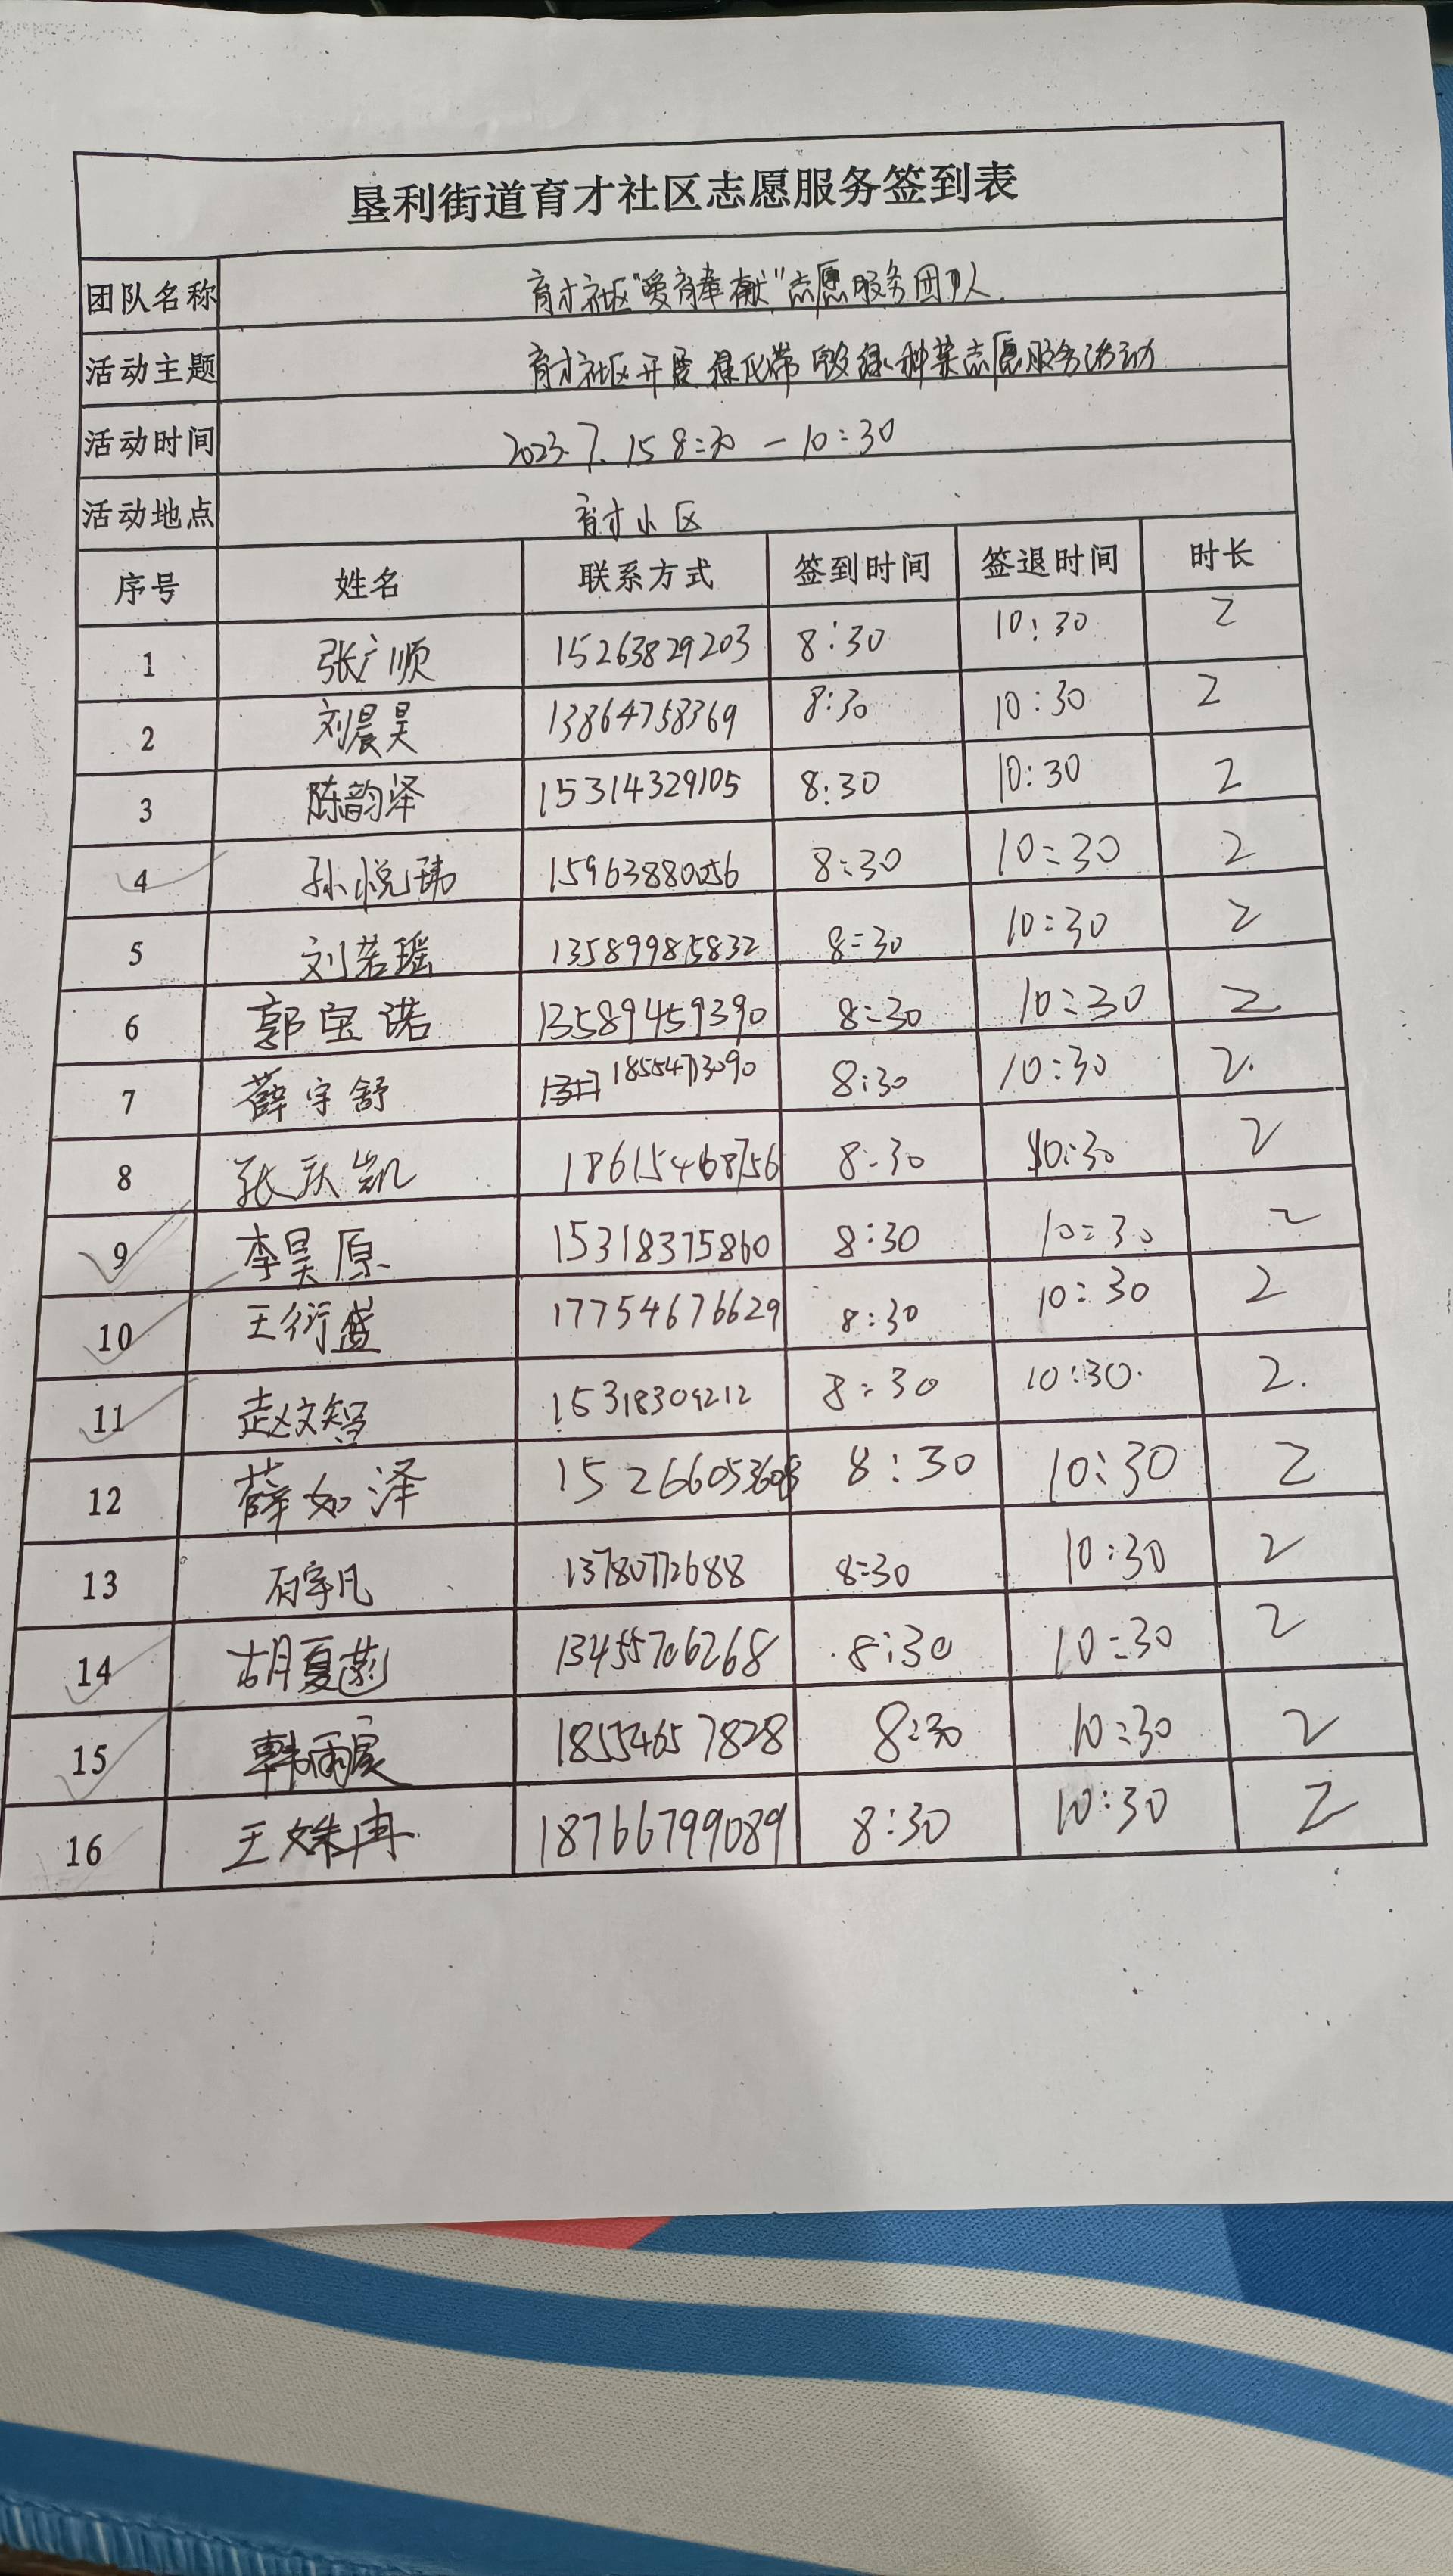 垦利街道育才社区志愿服务签到表
团队名称 育才社区“爱育奉献”志愿服务团队
活动主题 育才社区开展绿化带毁绿种菜志愿服务活动
活动时间 2023.7.15 8:30 — 10:30
活动地点 育才小区
序号 姓名 联系方式 签到时间 签退时间 时长
1 张广顺 15263829203 8:30 10:30 2
2 刘晨昊 13864758369 8:30 10:30 2
3 陈韵泽 15314329105 8:30 10:30 2
4 孙悦玮 15963880056 8:30 10:30 2
5 刘若瑶 13589985832 8:30 10:30 2
6 郭宝诺 13589459390 8:30 10:30 2
7 薛宇舒 18554713090 8:30 10:30 2.
8 张庆凯 18615468756 8:30 10:30 2
9 李昊原 15318375860 8:30 10:30 2
10 王衍盛 17754676629 8:30 10:30 2
11 赵文智 15318309212 8:30 10:30. 2.
12 薛如泽 8:30 10:30 2
13 石宇凡 13780772688 8:30 10:30 2
14 胡夏 13455706268 8:30 10:30 2
15 韩雨宸 18554657828 8:30 10:30 2
16 王姝冉 18766799089 8:30 10:30 2